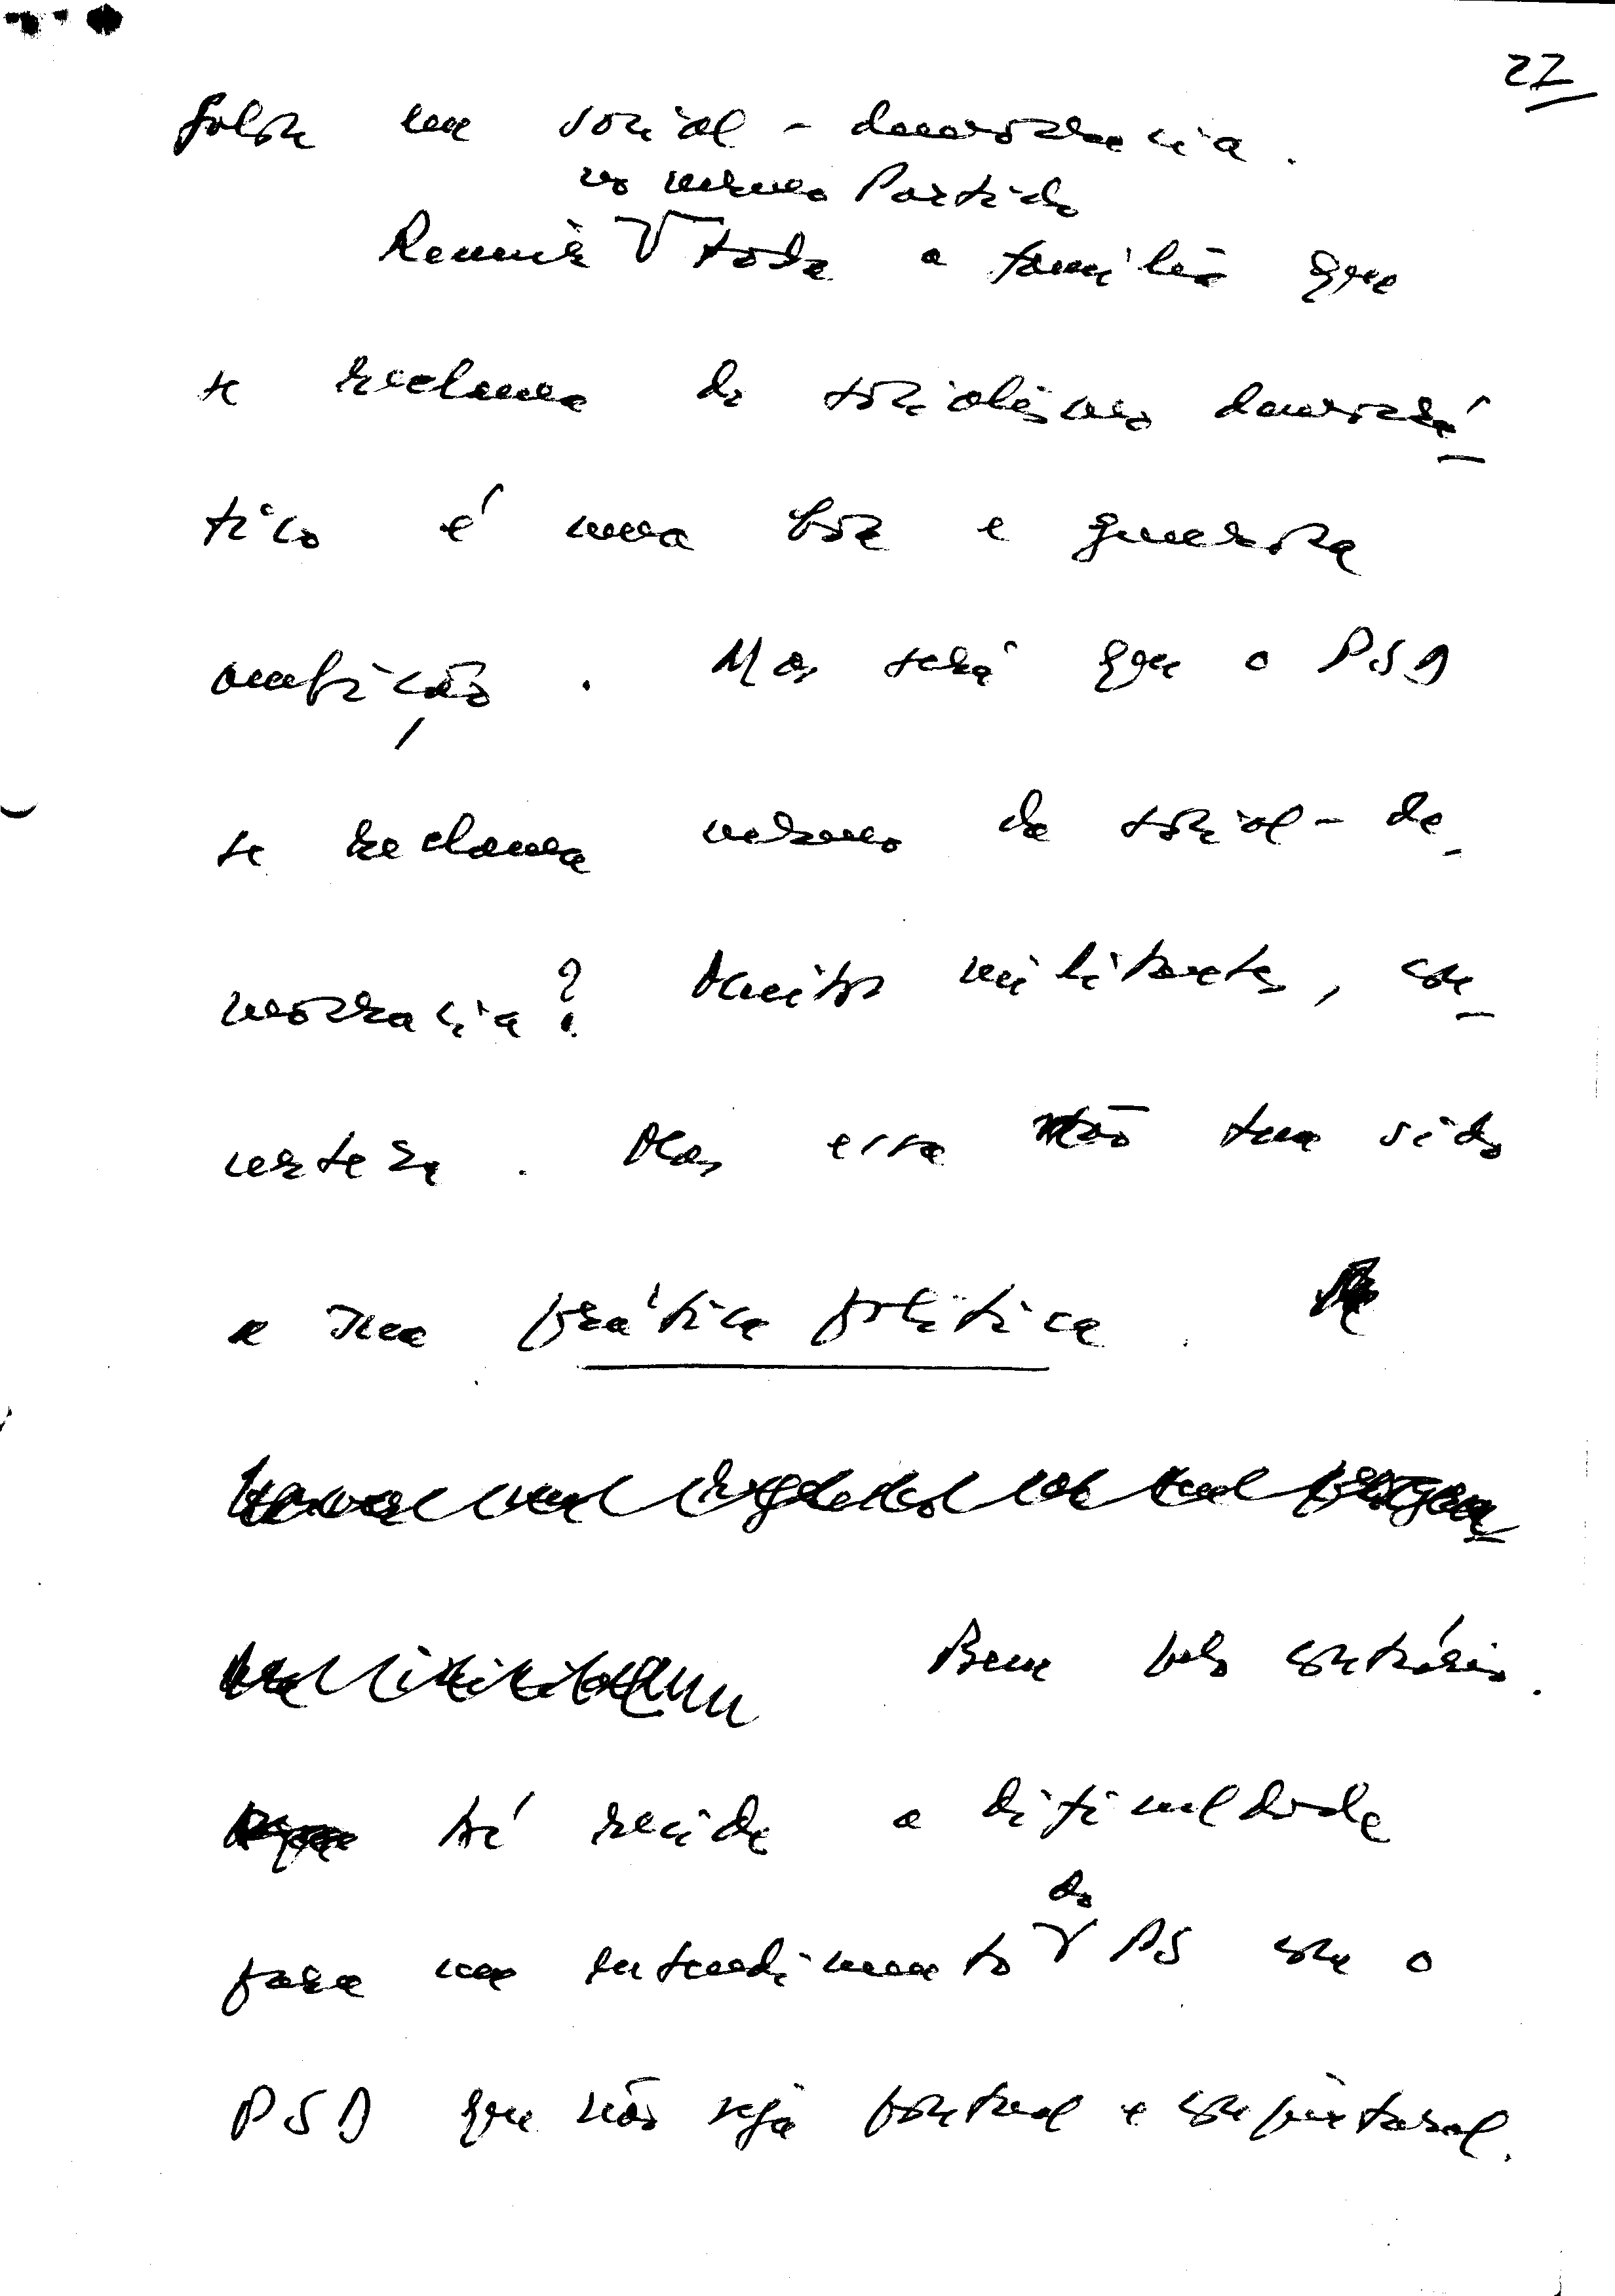 27
fala em social-democracia.
no mesmo Partido
Reunir V toda a família que
se reclama do socialismo democrá-
tico é uma boa e generosa
ambição. Mas será que o PSD
se reclama mesmo da social-de-
mocracia? Muitos militantes, com
certeza. Mas essa não tem sido
a sua prática política.
Bem pelo contrário.
Aí reside a dificuldade
do
para um entendimento V PS com o
PSD que não seja pontual e conjuntural.